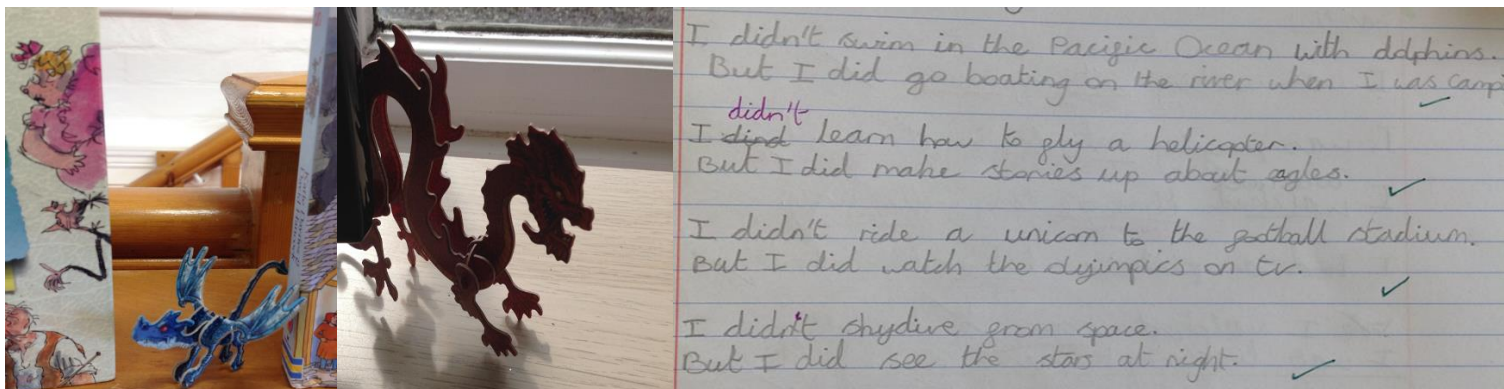 I didn't swim in the Pacific Ocean with dolphins.
But I did go boating on the river when I was camp
didn't
I dind learn how to fly a helicopter.
But I did make stories up about eagles.
I didn't ride a unicorn to the football stadium.
But I did watch the olyimpics on tv.
I didn't skydive from space.
But I did see the stars at night.